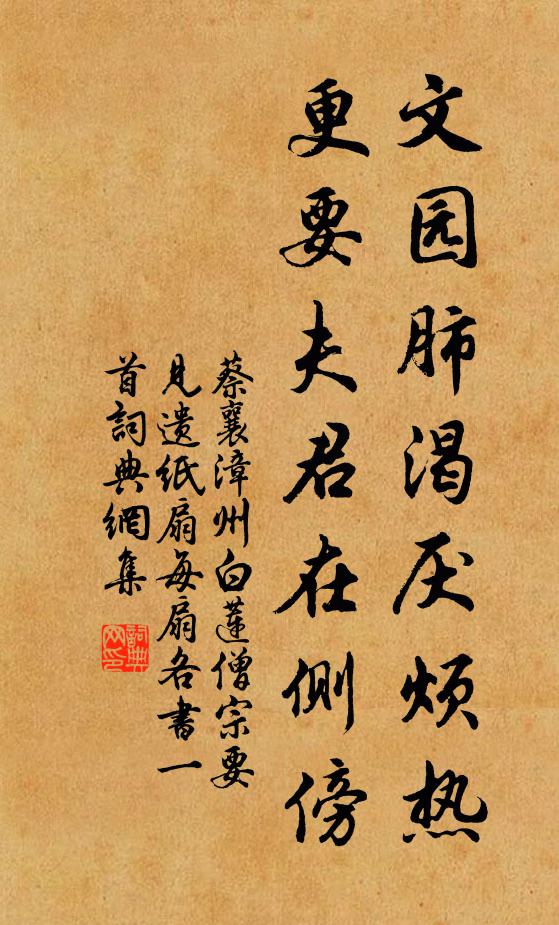 文园肺渴厌烦热
更要夫君在侧傍
蔡襄漳州白莲僧宗要
见遗纸扇每扇各书一
首词典網集
詞典網印